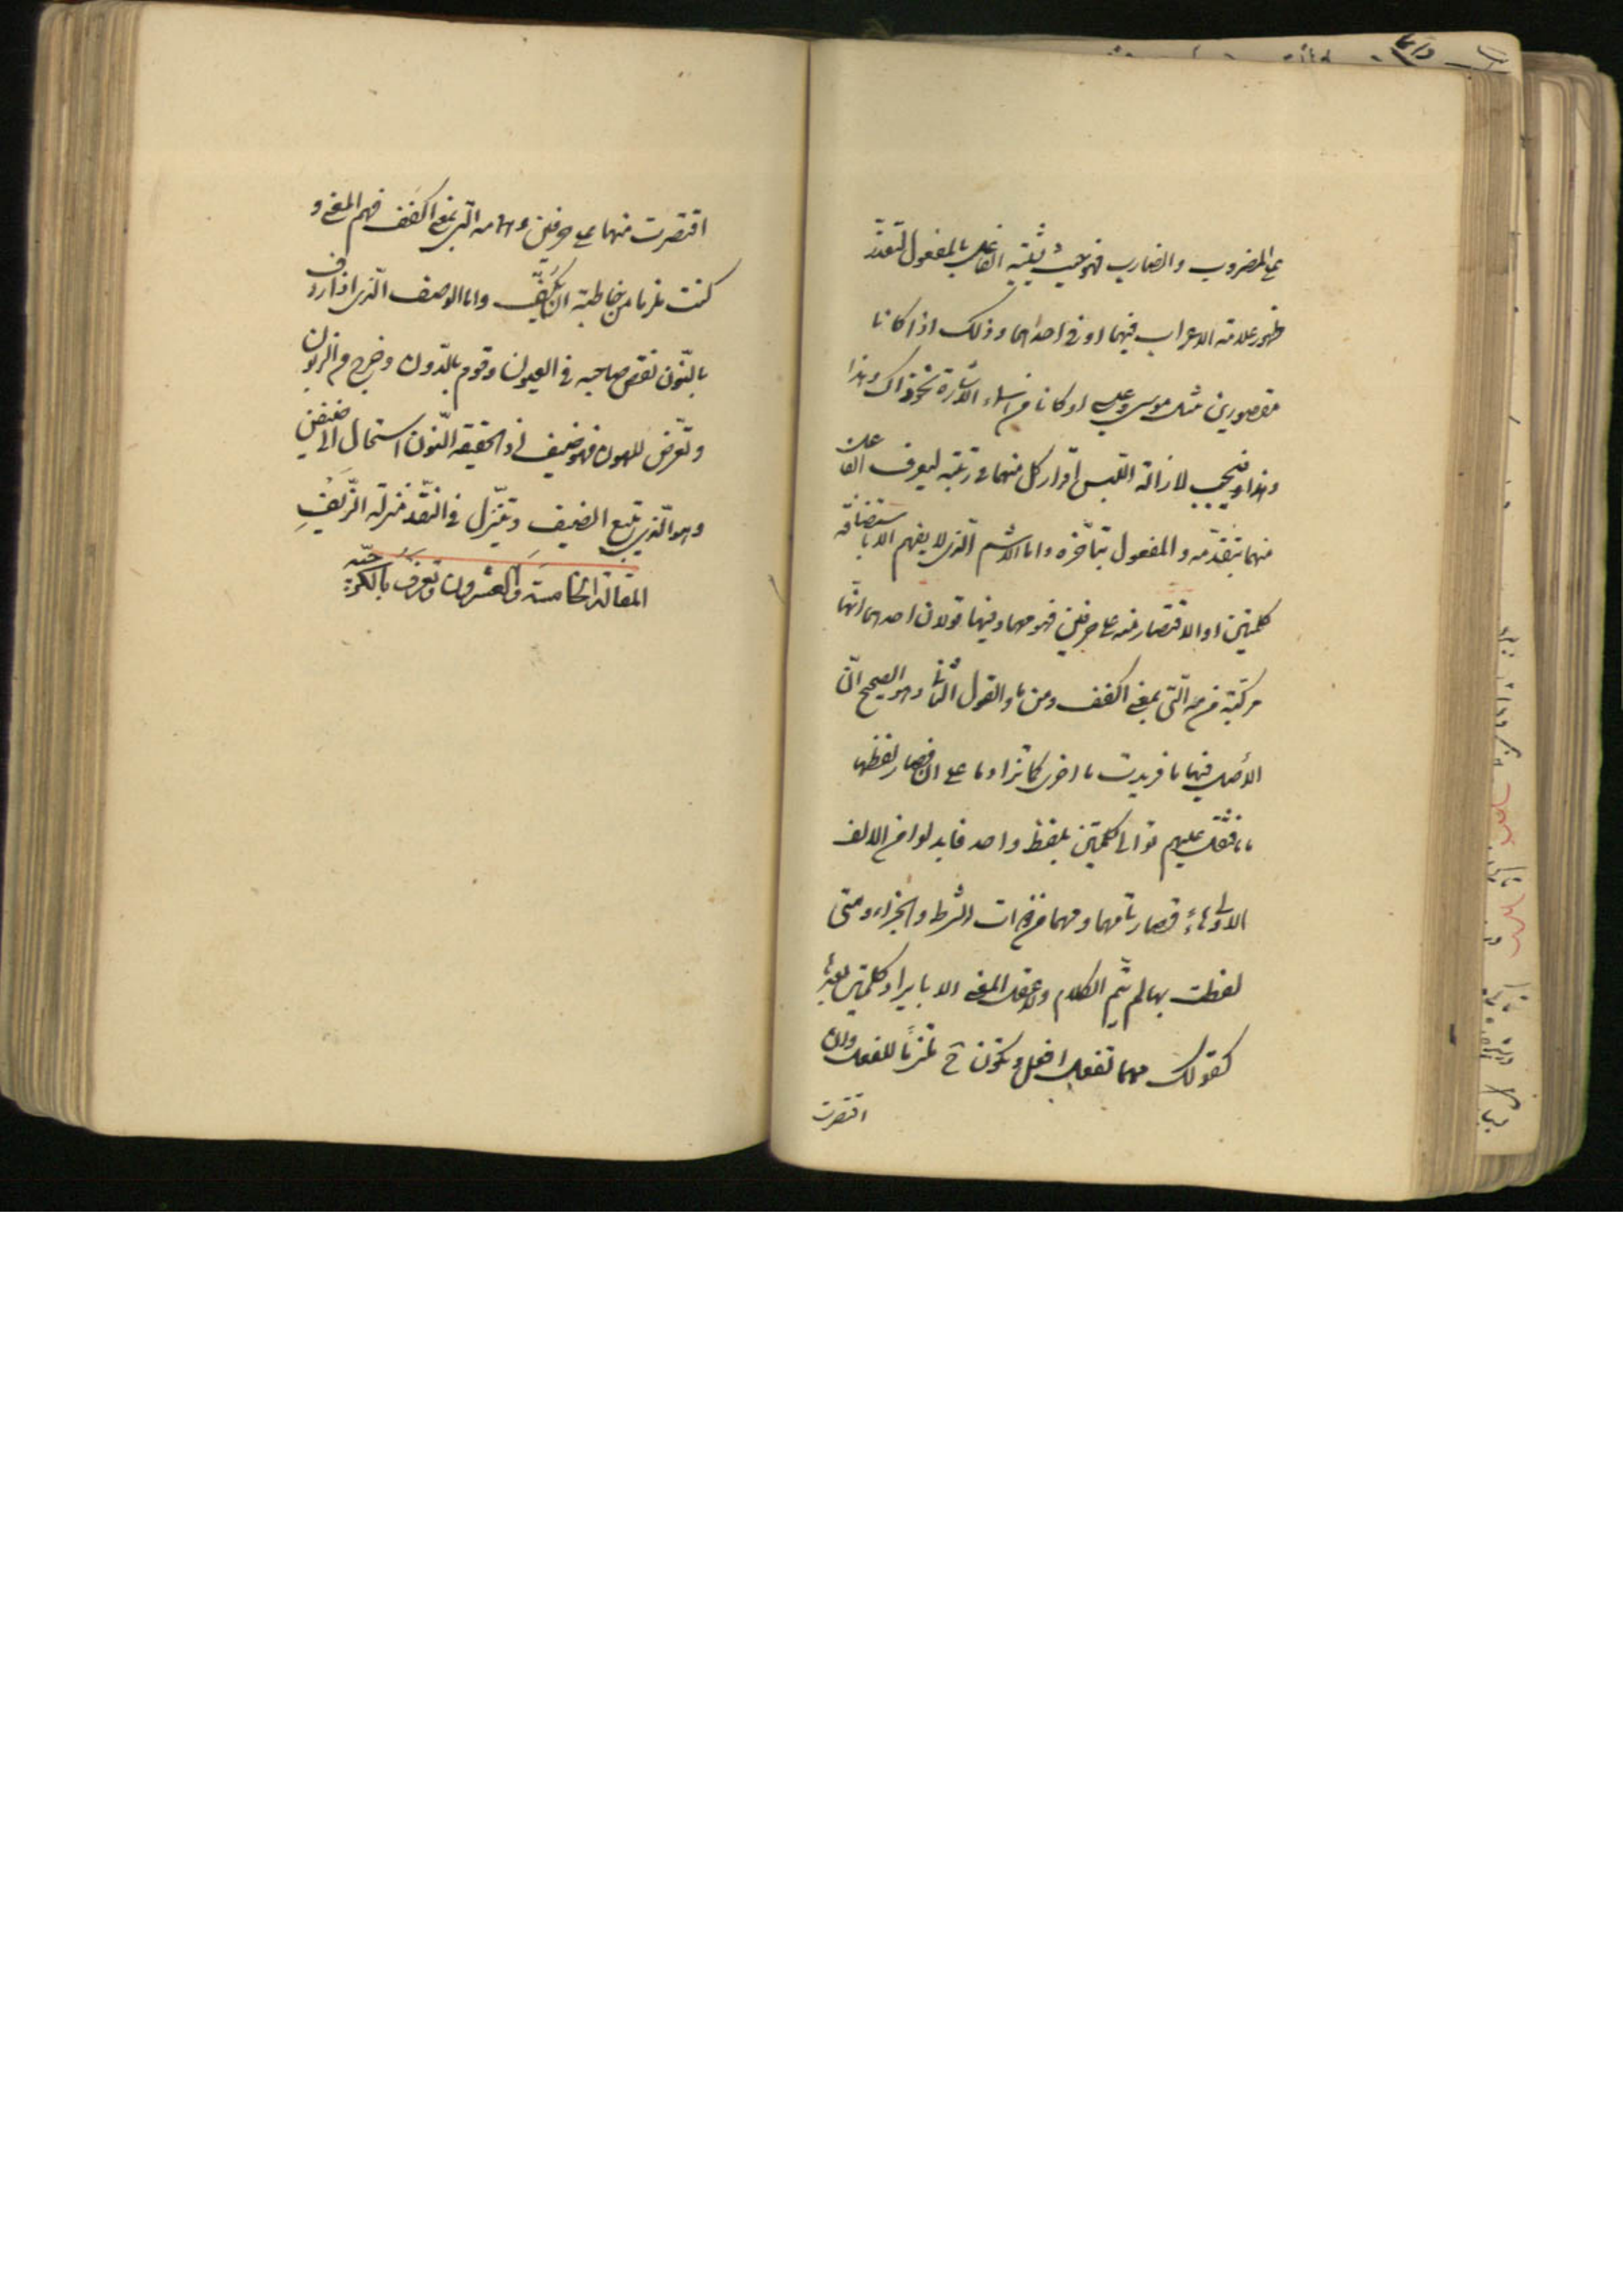 على المضروب والضارب فهو حيث يشتبه الفاعل بالمفعول لتعذر
ظهور علامة الاعراب فيهما او في احدهما وذلك اذا كانا
مقصورين مثل موسى وعيسى او كانا من اسماء الاشارة نحو ذاك وهذا
وهذا فيجب لازالة اللبس اقرار كل منهما في رتبته ليعرف الفاعل
منهما بتقدمه والمفعول بتأخره واما الاسم الذي لا يفهم الا باستضافة
كلمتين او الاقتصار منه على حرفين فهو مهما وفيها قولان احدهما انها
مركبة من مه التي بمعنى اكفف ومن ما والقول الثاني وهو الصحيح ان
الأصل فيها ما فزيدت ما اخرى كما تزاد ما على ان فصار لفظها
ما ما فثقل عليهم توالي كلمتين بلفظ واحد فابدلوا من الالف
الاولى هاء فصارتا مهما ومهما من ادوات الشرط والجزاء ومتى
لفظت بها لم يتم الكلام ولا عقل المعنى الا بايراد كلمتين بعدها
كقولك مهما تفعل افعل وتكون ح ملتزما للفعل وان
اقتصرت
اقتصرت منهما على حرفين وهما مه التي بمعنى اكفف فهم المعنى و
كنت ملزما من خاطبته ان يكف واما الوصف الذي اذا اردف
بالنون نقص صاحبه في العيون وقوم بالدون وخرج من الزبون
وتعرض للهون فهو ضيف اذا لحقته النون استحال الى ضيفن
وهو الذي يتبع الضيف ويتنزل في النقد منزلة الزيف
المقالة الخامسة والعشرون وتعرف بالكرجية